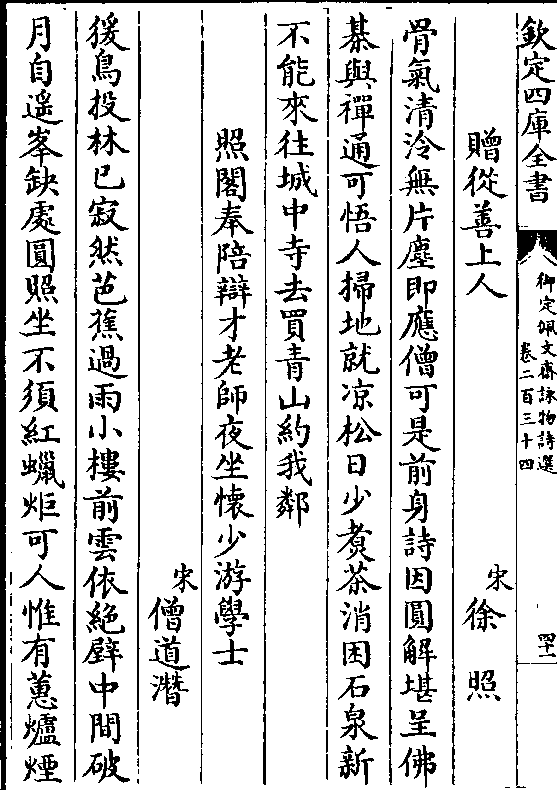 欽定四庫全書
御定佩文齋詠物詩選
卷二百三十四
四十一
贈從善上人
宋徐照
骨氣清泠無片塵即應僧可是前身詩因圓解堪呈佛
棊與禪通可悟人掃地就凉松日少煑茶消困石泉新
不能來往城中寺去買青山約我鄰
照閣奉陪辯才老師夜坐懷少游學士
宋僧道潛
猨鳥投林已寂然芭蕉過雨小樓前雲依絶壁中間破
月自遥峯缺處圓照坐不須紅蠟炬可人惟有蕙爐煙